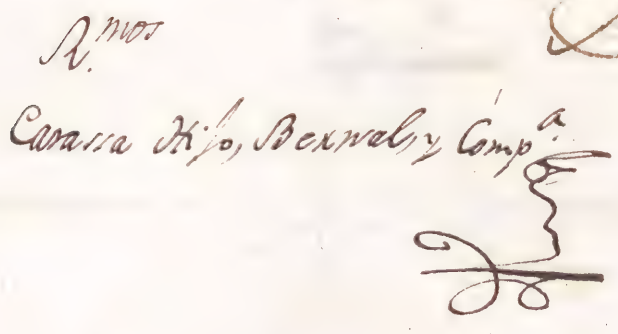 R.mos
Carassa Hijo, Bernal, y Comp.a